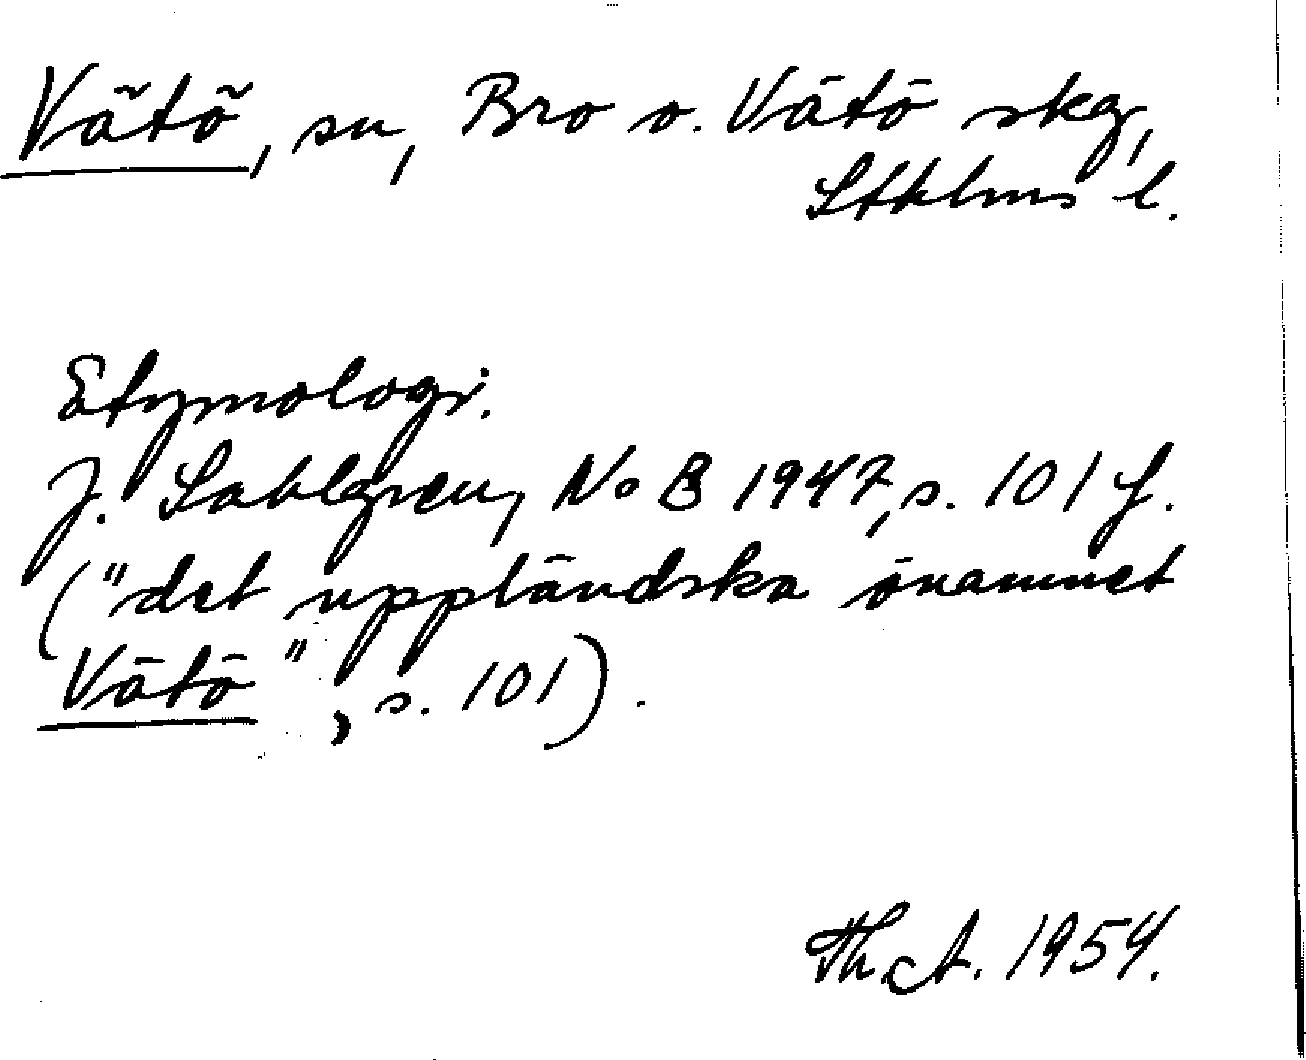 Vätö, sn, Bro o. Vätö skg,
Stklms l.
Etymologi.
J. Sahlgren, NoB 1947, s. 101 f.
("det uppländska önamnet
Vätö", s. 101).
Th. A. 1954.